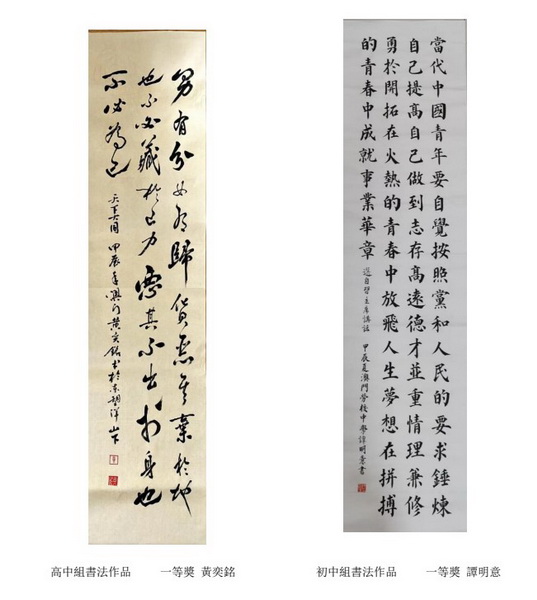 男有分女有歸貨惡其棄於地
也不必藏於己力惡其不出於身也
不必為己
甲辰年澳門黃奕銘書於東望洋山下
當代中國青年要自覺按照黨和人民的要求錘煉
自己提高自己做到志存高遠德才並重情理兼修
勇於開拓在火熱的青春中放飛人生夢想在拼搏
的青春中成就事業華章
選自習主席講話
甲辰夏澳門勞校中學譚明意書
高中組書法作品 一等獎 黃奕銘
初中組書法作品 一等獎 譚明意